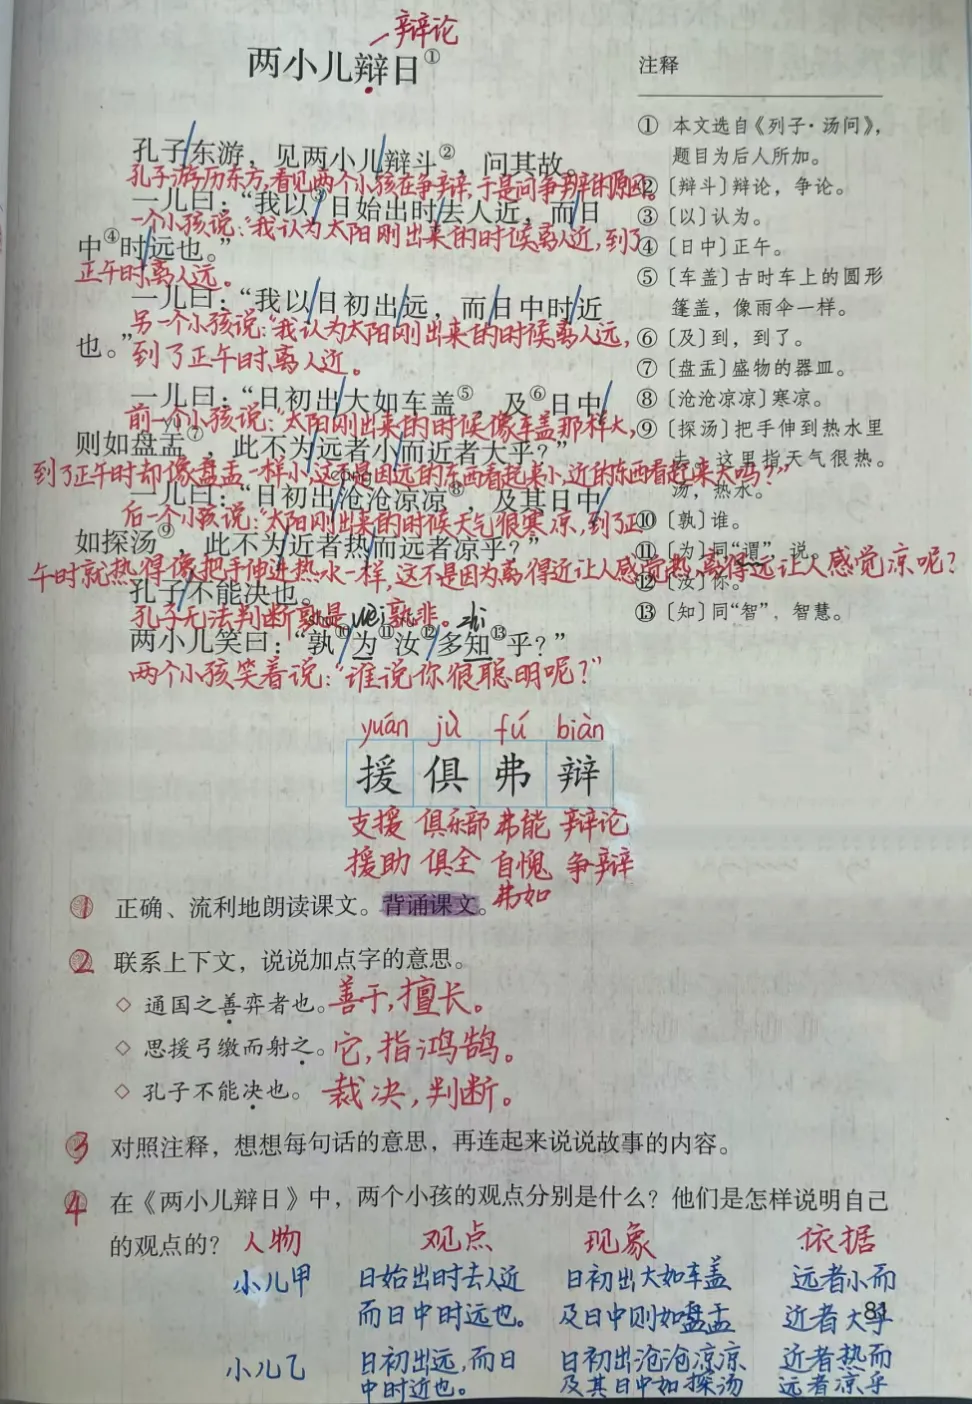 辩论
两小儿辩日①
孔子东游，见两小儿辩斗②，问其故。
孔子游历东方，看见两个小孩在争辩，于是问争辩的原因。
一儿曰：“我以③日始出时去人近，而日
一个小孩说：“我认为太阳刚出来的时候离人近，到了
中④时远也。”
正午时离人远。
一儿曰：“我以日初出远，而日中时近
另一个小孩说：“我认为太阳刚出来的时候离人远，
也。”
到了正午时离人近。
一儿曰：“日初出大如车盖⑤，及⑥日中
前一个小孩说：“太阳刚出来的时候像车盖那样大，
则如盘盂⑦，此不为远者小而近者大乎？”
到了正午时却像盘盂一样小，这不是因远的东西看起来小，近的东西看起来大吗？”
一儿曰：“日初出沧沧凉凉⑧，及其日中
后一个小孩说：“太阳刚出来的时候天气很寒凉，到了正
如探汤⑨，此不为近者热而远者凉乎？”
午时就热得像把手伸进热水一样，这不是因为离得近让人感觉热，离得远让人感觉凉呢？
孔子不能决也。
孔子无法判断孰是孰非。
wèi zhì
两小儿笑曰：“孰⑩为⑪汝⑫多知⑬乎？”
两个小孩笑着说：“谁说你很聪明呢？”
注释
① 本文选自《列子·汤问》，
题目为后人所加。
②〔辩斗〕辩论，争论。
③〔以〕认为。
④〔日中〕正午。
⑤〔车盖〕古时车上的圆形
篷盖，像雨伞一样。
⑥〔及〕到，到了。
⑦〔盘盂〕盛物的器皿。
⑧〔沧沧凉凉〕寒凉。
⑨〔探汤〕把手伸到热水里
去。这里指天气很热。
汤，热水。
⑩〔孰〕谁。
⑪〔为〕同“谓”，说。
⑫〔汝〕你。
⑬〔知〕同“智”，智慧。
yuán jù fú biàn
援 俱 弗 辩
支援 俱乐部 弗能 辩论
援助 俱全 自愧 争辩
弗如
① 正确、流利地朗读课文。背诵课文。
② 联系上下文，说说加点字的意思。
◇ 通国之善弈者也。善于，擅长。
◇ 思援弓缴而射之。它，指鸿鹄。
◇ 孔子不能决也。裁决，判断。
③ 对照注释，想想每句话的意思，再连起来说说故事的内容。
④ 在《两小儿辩日》中，两个小孩的观点分别是什么？他们是怎样说明自己
的观点的？ 人物 观点 现象 依据
小儿甲 日始出时去人近 日初出大如车盖 远者小而
而日中时远也。 及日中则如盘盂 近者大乎
81
小儿乙 日初出远，而日 日初出沧沧凉凉 近者热而
中时近也。 及其日中如探汤 远者凉乎